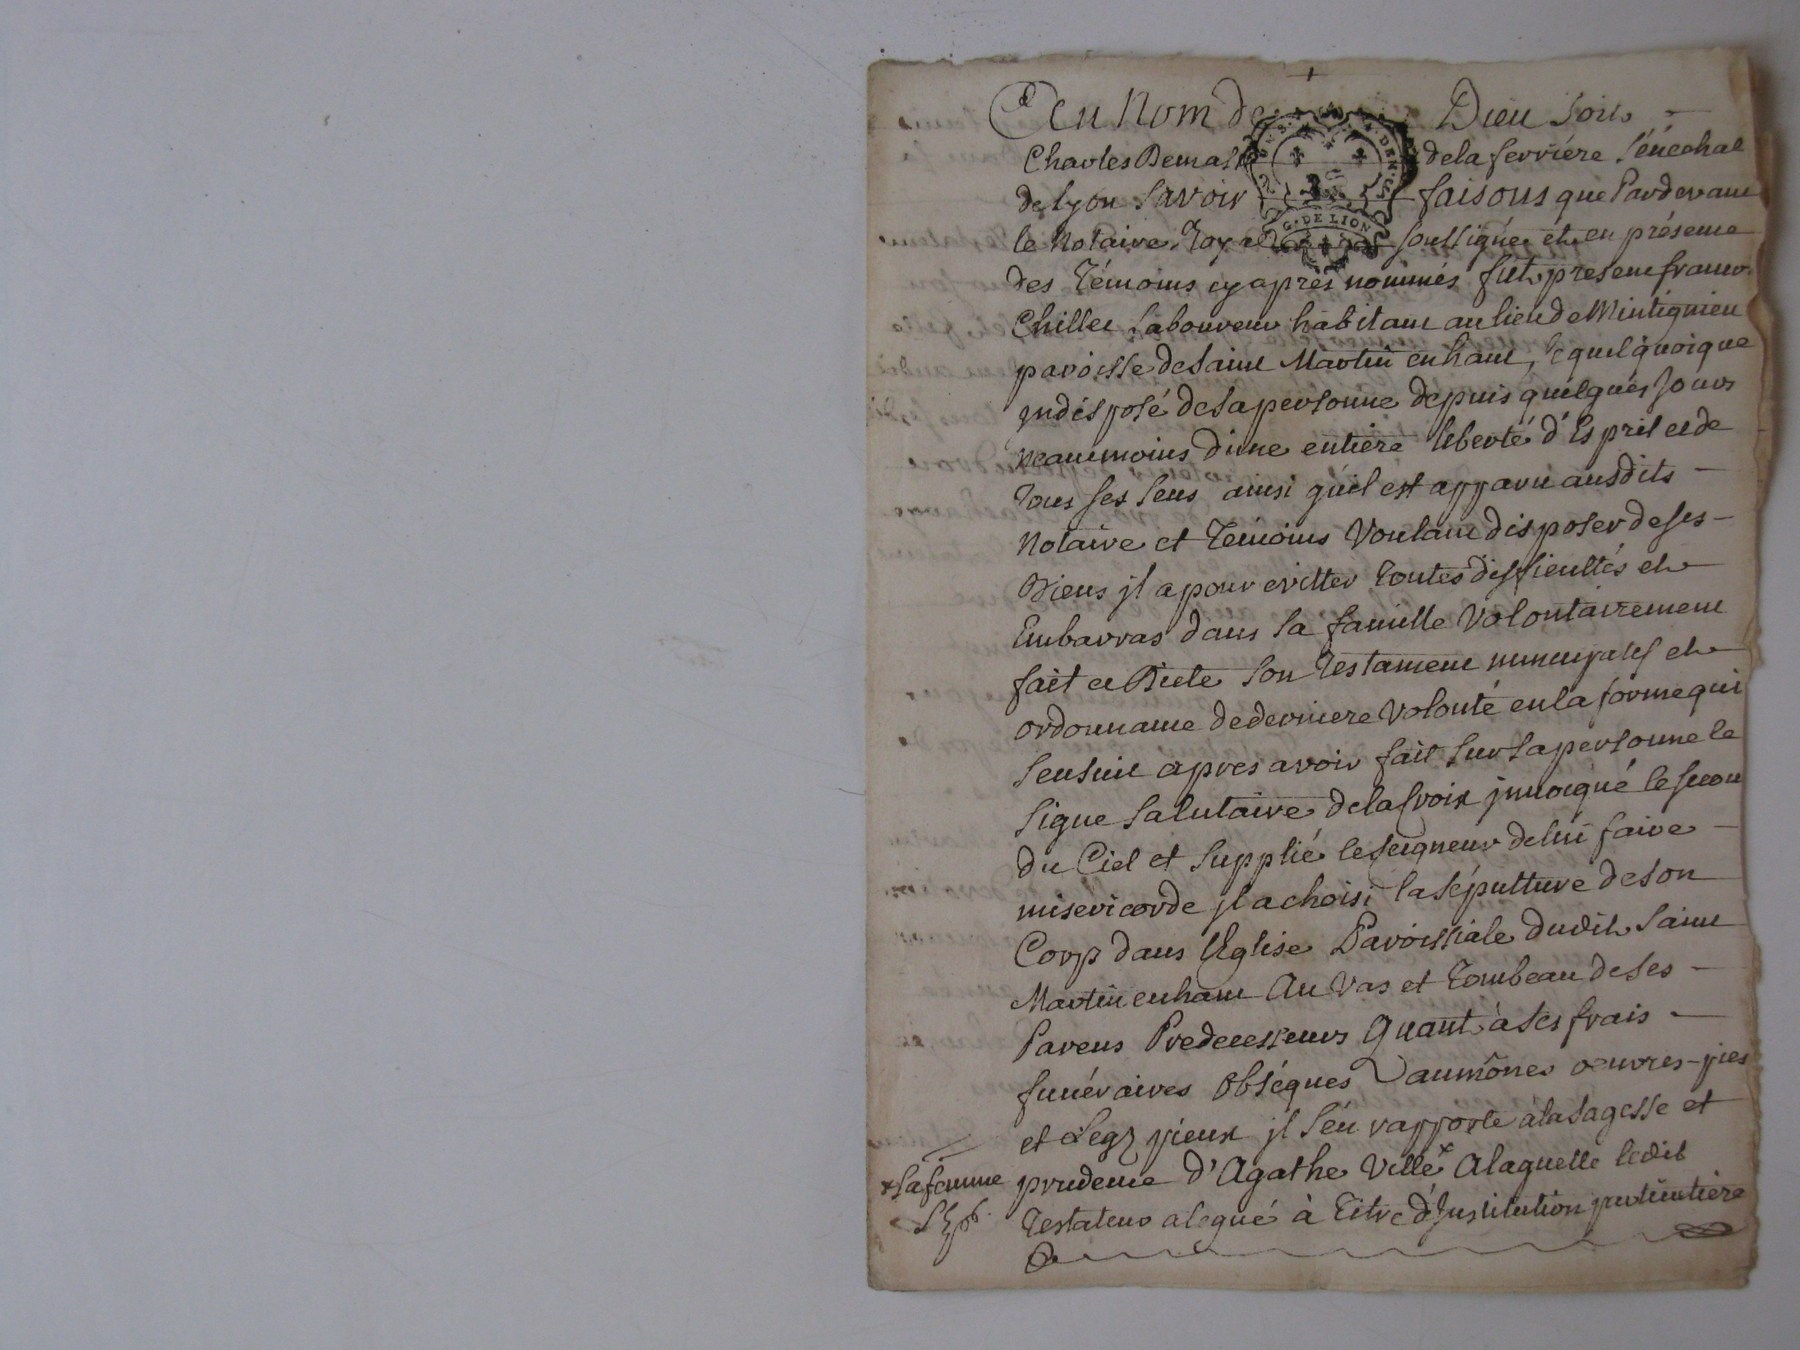 Au Nom de Dieu Soit
Charles Demas de la ferriére Sénéchal
de Lyon Savoir faisons que Pardevant
G. DE LION
le Notaire Royal soussigné et en présence
des Témoins cy après nommés fut present franc.
Chillet Laboureur habitant au lieu de Mintignieu
paroisse de saint Martin en haut, lequel quoique
indisposé de sa personne depuis quelques Jours
neanmoins d'une entiére liberté d'Esprit et de
Tous ses sens ainsi qu'il est apparu ausdits
Notaire et Témoins Voulant disposer de ses
Biens il a pour evitter toutes difficultés et
Embarras dans sa famille Volontairement
fait et Dicté son testament nuncupatif et
ordonnance de derniere Volonté en la forme qui
sensuit apres avoir fait sur sa personne le
signe salutaire de la Croix invoqué le secou
du Ciel et supplié le seigneur de lui faire
misericorde il a choisi la sépulture de son
Corp dans l'Eglise Paroissiale dudit saint
Martin en haut Au Vas et Tombeau de ses
Parens Predecesseurs Quant à ses frais
funéraires Obséques aumônes oeuvres-pies
et Legz pieux il s'en rapporte à la sagesse et
prudence d'Agathe Ville x A laquelle ledit
x sa femme
Testateur a legué à Titre d'Institution particuliere